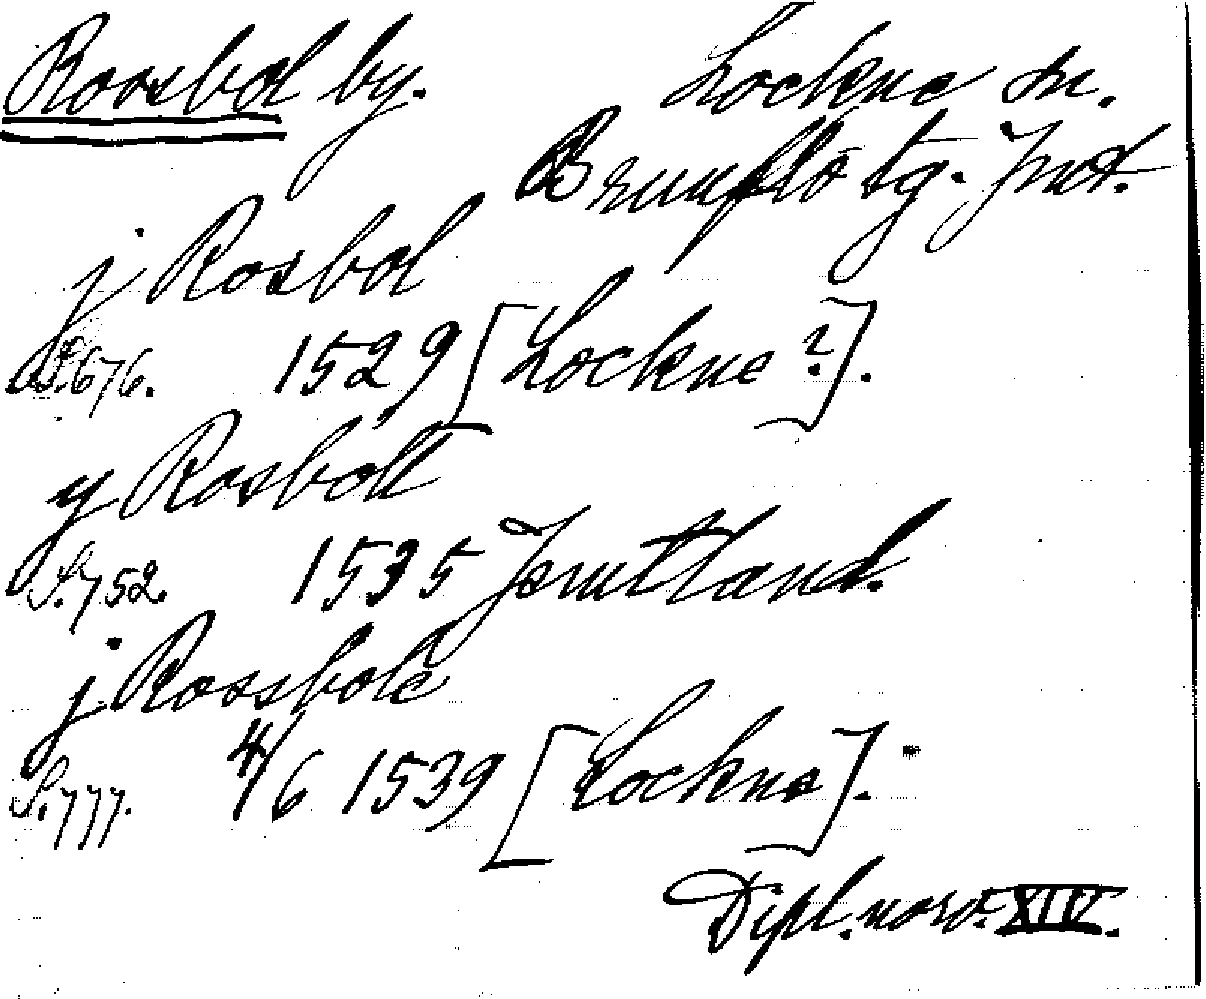 Roosbol by. Lockne sn.
Brunflo tg. Jmt.
j Rosbol
S. 676. 1529 [Lockne?].
y Rosböll
S. 752. 1535 Jemtland.
j Rossbole
S. 777. 4/6 1539 [Lockne].
Dipl. norv. XIV.